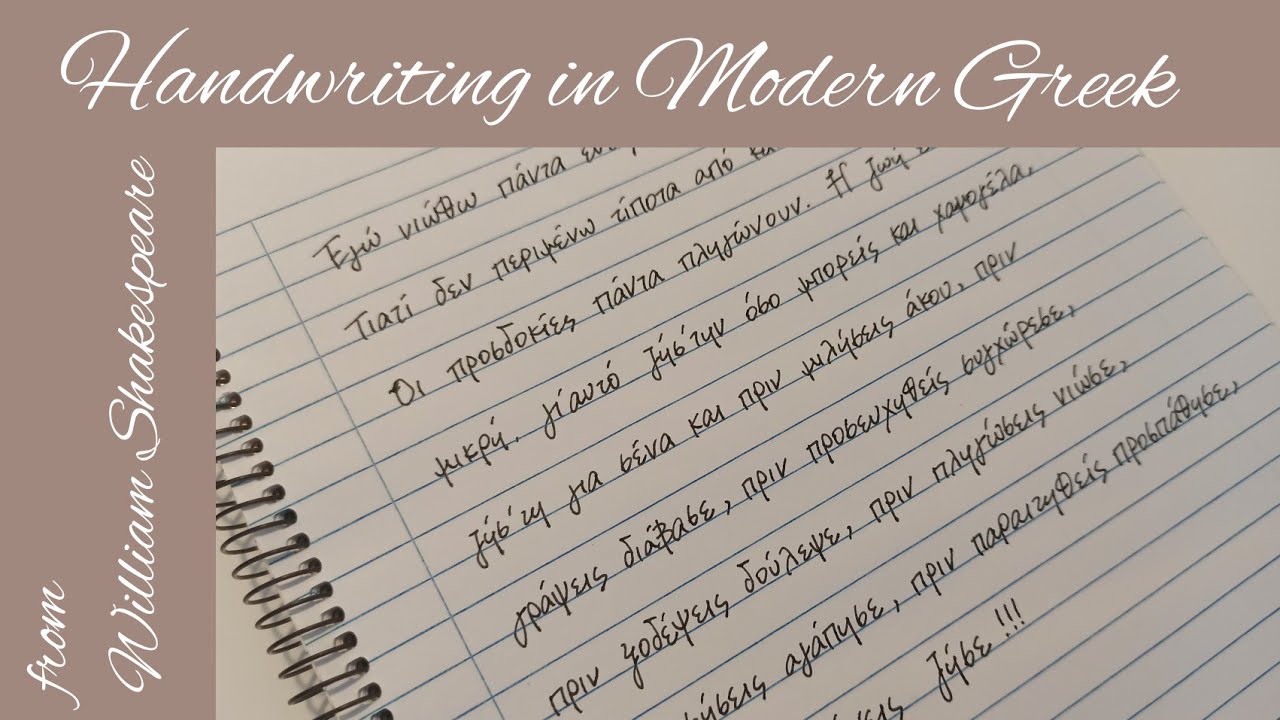 Handwriting in Modern Greek
from
William Shakespeare
Εγώ νιώθω πάντα
Γιατί δεν περιμένω τίποτα από
Οι προσδοκίες πάντα πληγώνουν. Η ζωή
μικρή. γι'αυτό ζήσ'την όσο μπορείς και χαμογέλα.
ζήσ'τη για σένα και πριν μιλήσεις άκου, πριν
γράψεις διάβασε, πριν προσευχηθείς συγχώρεσε,
πριν ξοδέψεις δούλεψε, πριν πληγώσεις νιώσε,
αγάπησε, πριν παραιτηθείς προσπάθησε,
ζήσε !!!